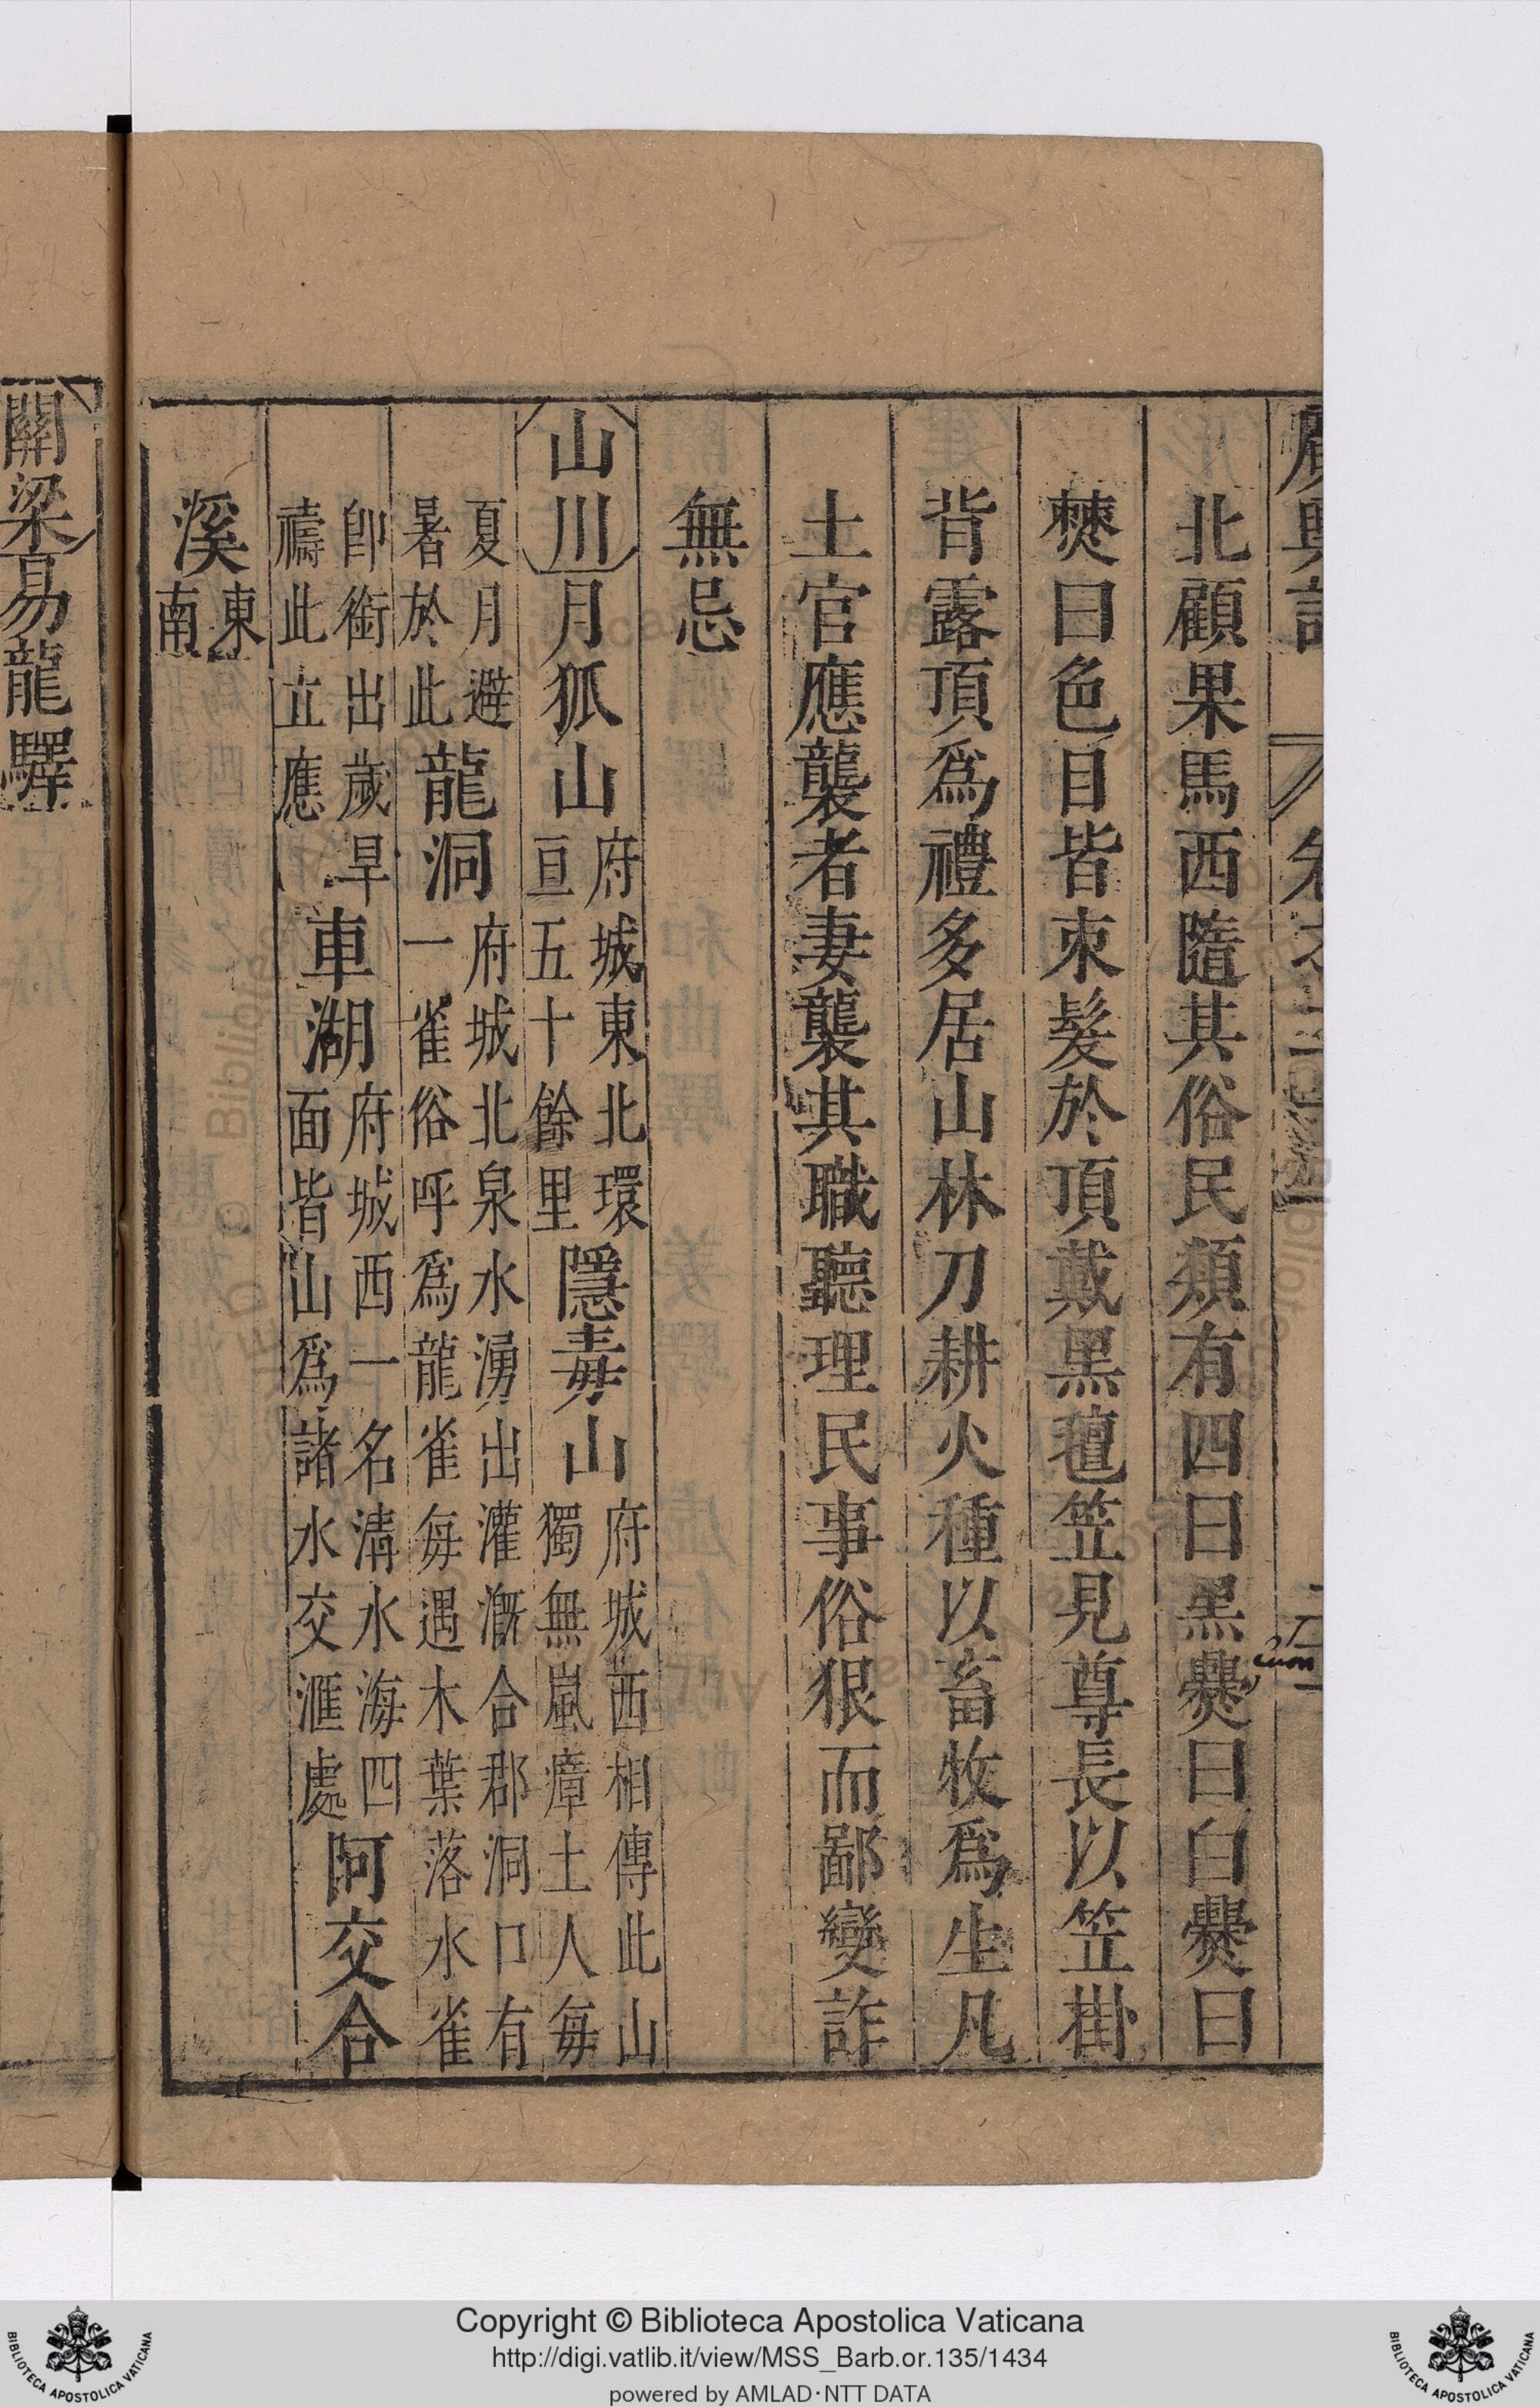 廣輿記
北顧果馬西隨其俗民類有四曰黑爨曰白爨曰
僰曰色目皆束髮於頂戴黑氊笠見尊長以笠掛
背露頂爲禮多居山林刀耕火種以畜牧爲生凡
土官應襲者妻襲其職聽理民事俗狠而鄙變詐
無忌
山川月狐山府城東北環亘五十餘里隱毒山府城西相傳此山獨無嵐瘴土人每
夏月避暑於此龍洞府城北泉水湧出灌漑合郡洞口有一雀俗呼爲龍雀每遇木葉落水雀
卽銜出歲旱禱此立應車湖府城西一名溝水海四面皆山爲諸水交滙處阿交合
溪東南
關梁易龍驛
Copyright © Biblioteca Apostolica Vaticana
http://digi.vatlib.it/view/MSS_Barb.or.135/1434
powered by AMLAD·NTT DATA
BIBLIOTECA APOSTOLICA VATICANA
BIBLIOTECA APOSTOLICA VATICANA